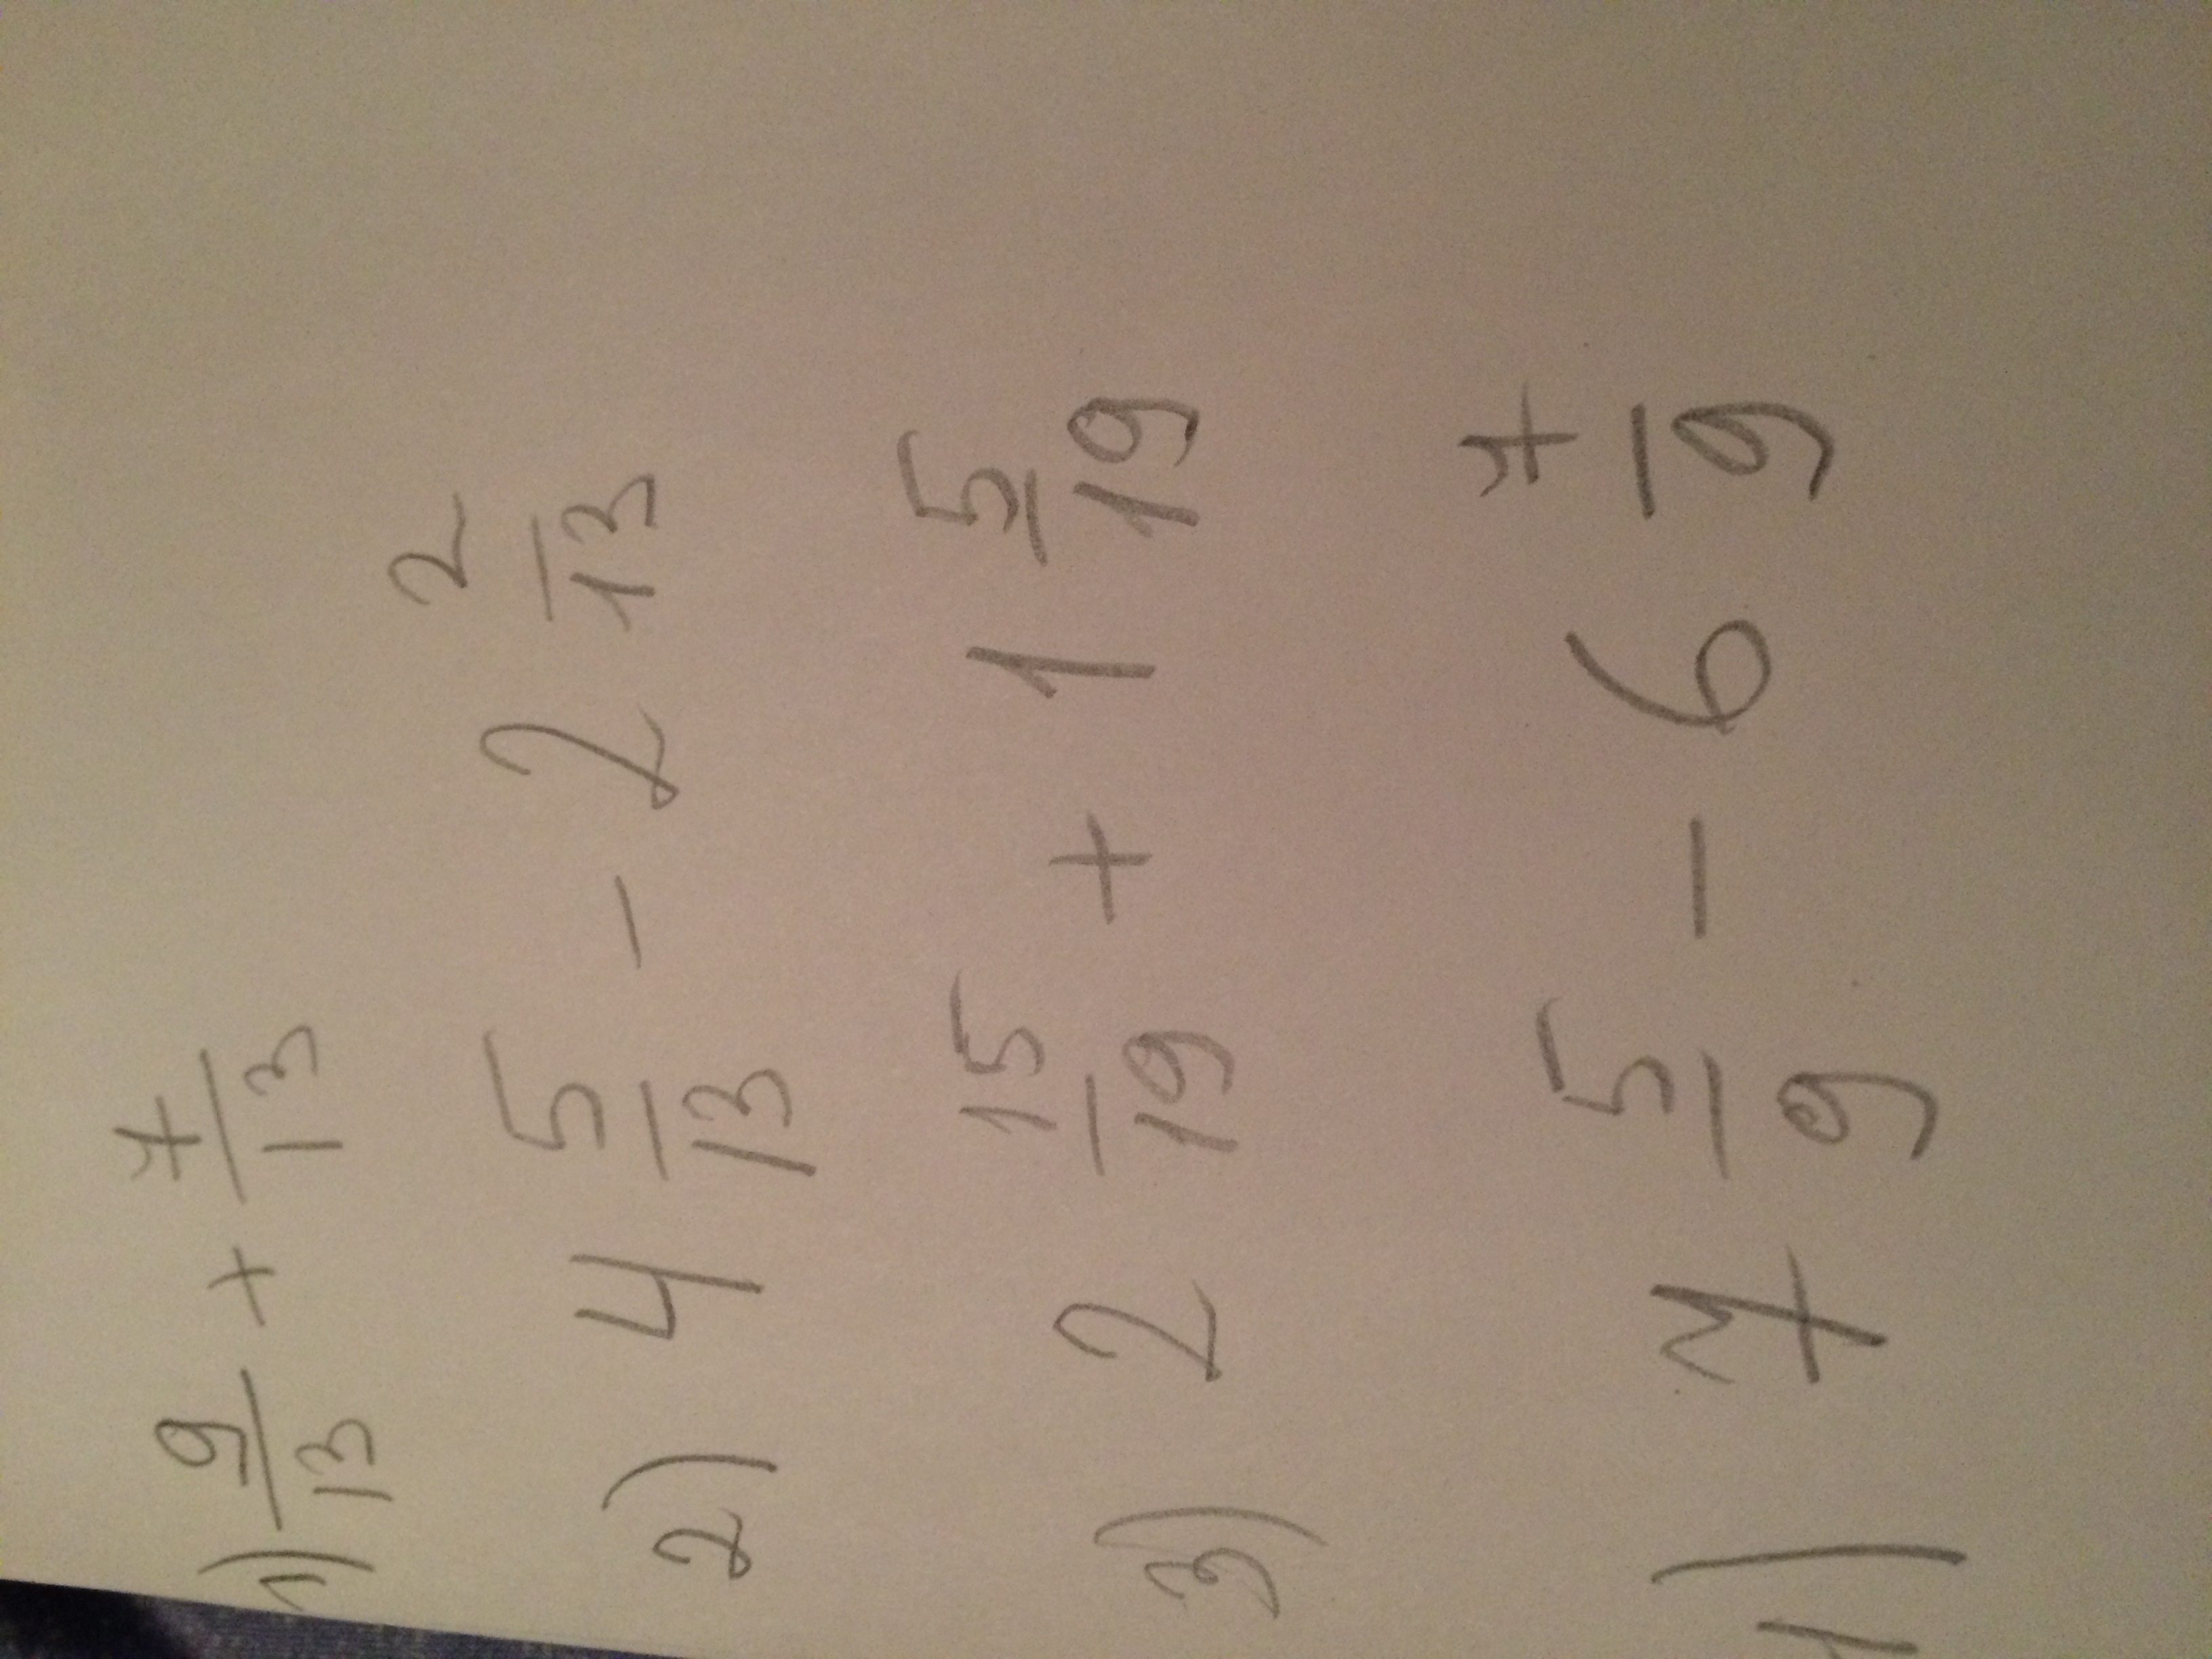 1) 9/13 + 7/13
2) 4 5/13 - 2 2/13
3) 2 15/19 + 1 5/19
) 7 5/9 - 6 7/9